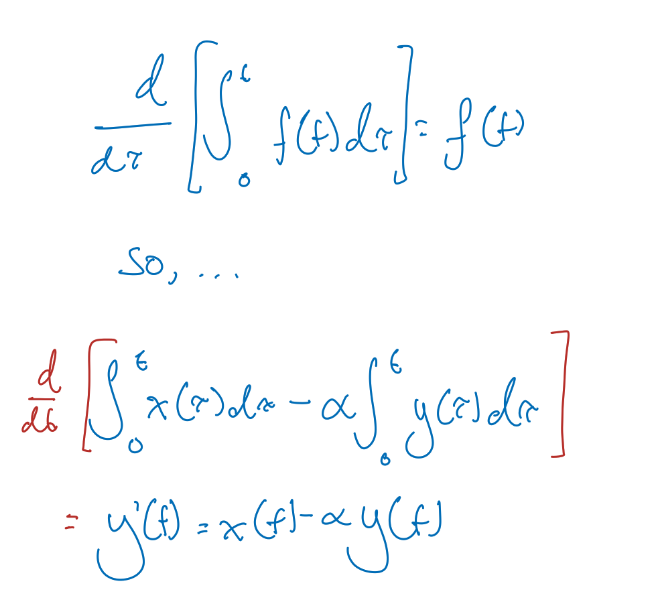 d/dτ [∫₀ᵗ f(t) dτ] = f(t)
so, ...
d/dt [∫₀ᵗ x(τ) dτ - α ∫₀ᵗ y(τ) dτ]
= y'(t) = x(t) - α y(t)